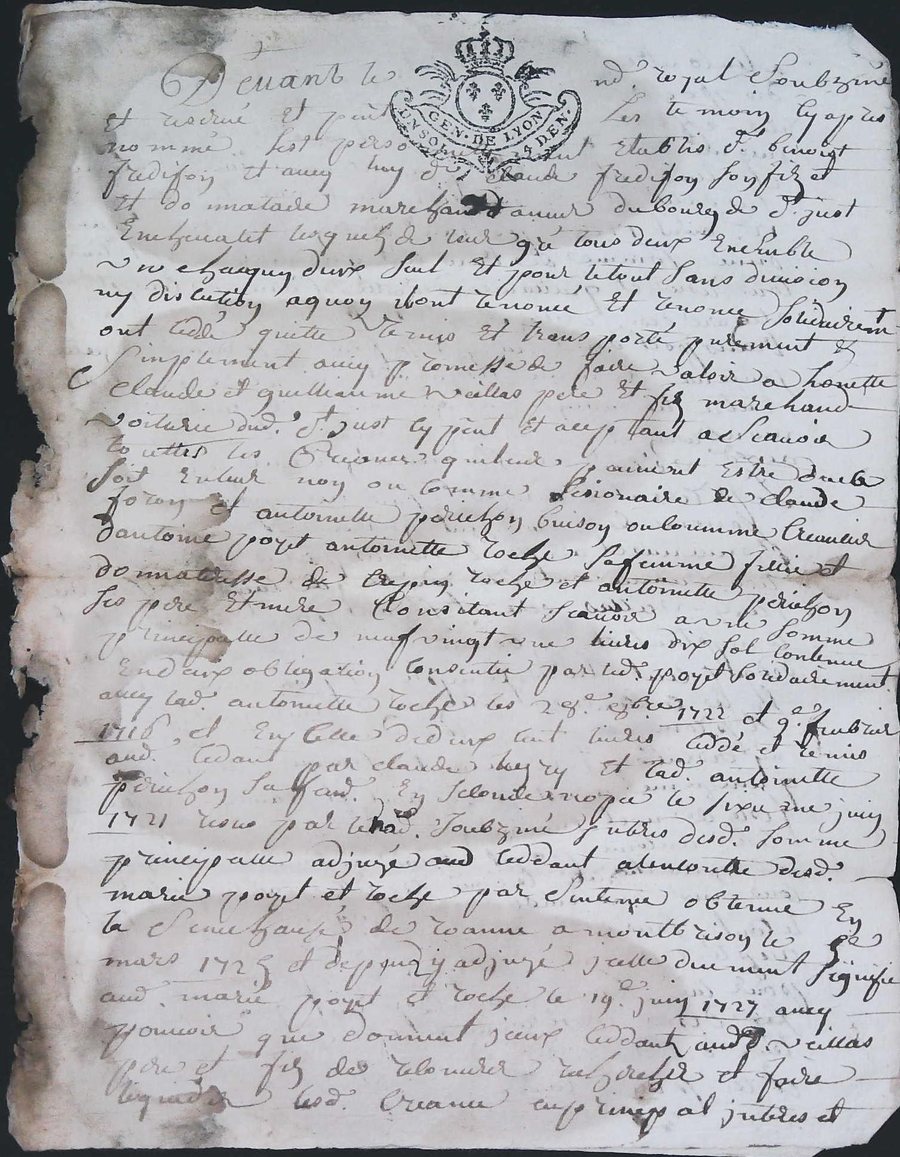 Devant le nd. royal Soubzsiné
GEN. DE LYON
UN SOL 4 DEN.
et reservé et p Les temoins cy apres
nommé sest perso ent Etablis Sr. benoigt
fredifon et avec luy Sr. Claude fredifon Son fiz et
et donnataire marchand du bourg de St. just
Enchevalet lesquelz de leur gré tous deux Ensemble
un chacqun deux Seul et pour le tout Sans division
ny discution aquoy ilont renoncé et renonce Solidairemt
ont cedde quitte remis et transporté purement &
Simplement avec promesse de faire valoir a honette
Claude et guilliaume veillas pere et fiz marchand
voiturie dud. St. just cy pnt et aceptant a Scavoir
touttes les Creance quileur peuvent Estre deub
Soit En leur non ou comme Cesionaire de claude
et antoinette perichon ou comme Creancier
dantoine poyet antoinette roche Sa femme fille et
donnatresse de roche et antoinette perichon
Ses pere et mere Consitant Scavoir a une Somme
principalle de neufvingt une livres dix Sol Contenue
En deux obligation Consentie par led. poyet Solidairement
avec lad. antoinette roche les 28e. 8bre 1722 et 9e. feubrier
1716, et En Celle de deux cent livres ceddé et remis
aud. Cedant par claude et lad. antoinette
perichon Sa fam. En Seconde nopce le sixieme juin
1721 receu par led. Soubzsiné jnteres desd. Somme
principalle adjugé aud Ceddant alencontre desd.
marié poyet et roche par Sentence obtenue En
la Senechausé de roanne a montbrison le
mars 1725 et depuis y adjugé jcelle duement Signifie
aud. marié poyet et roche le 19e. juin 1727 avec
pouvoir que donnent jceux Ceddant aud. veillas
pere et fiz de retourner rechercher et faire
lesd. Creance en principal jnteres et